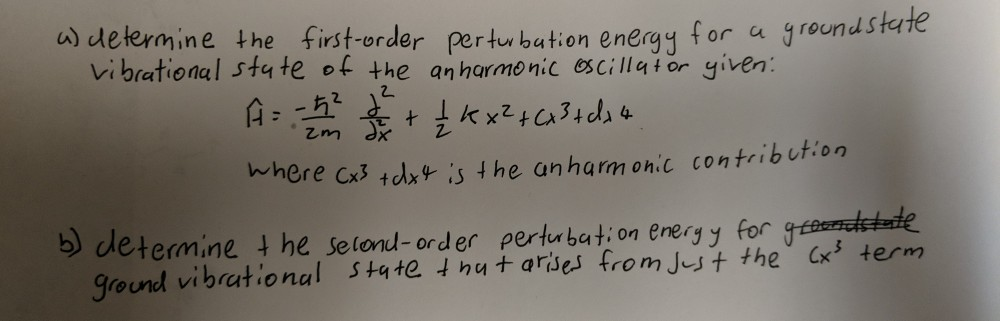 a) determine the first-order perturbation energy for a groundstate
vibrational state of the anharmonic oscillator given:
Ĥ = -ħ²/2m ∂²/∂x² + 1/2 k x² + cx³ + dx4
where cx³ + dx4 is the anharmonic contribution
b) determine the second-order perturbation energy for groundstate
ground vibrational state that arises from just the cx³ term